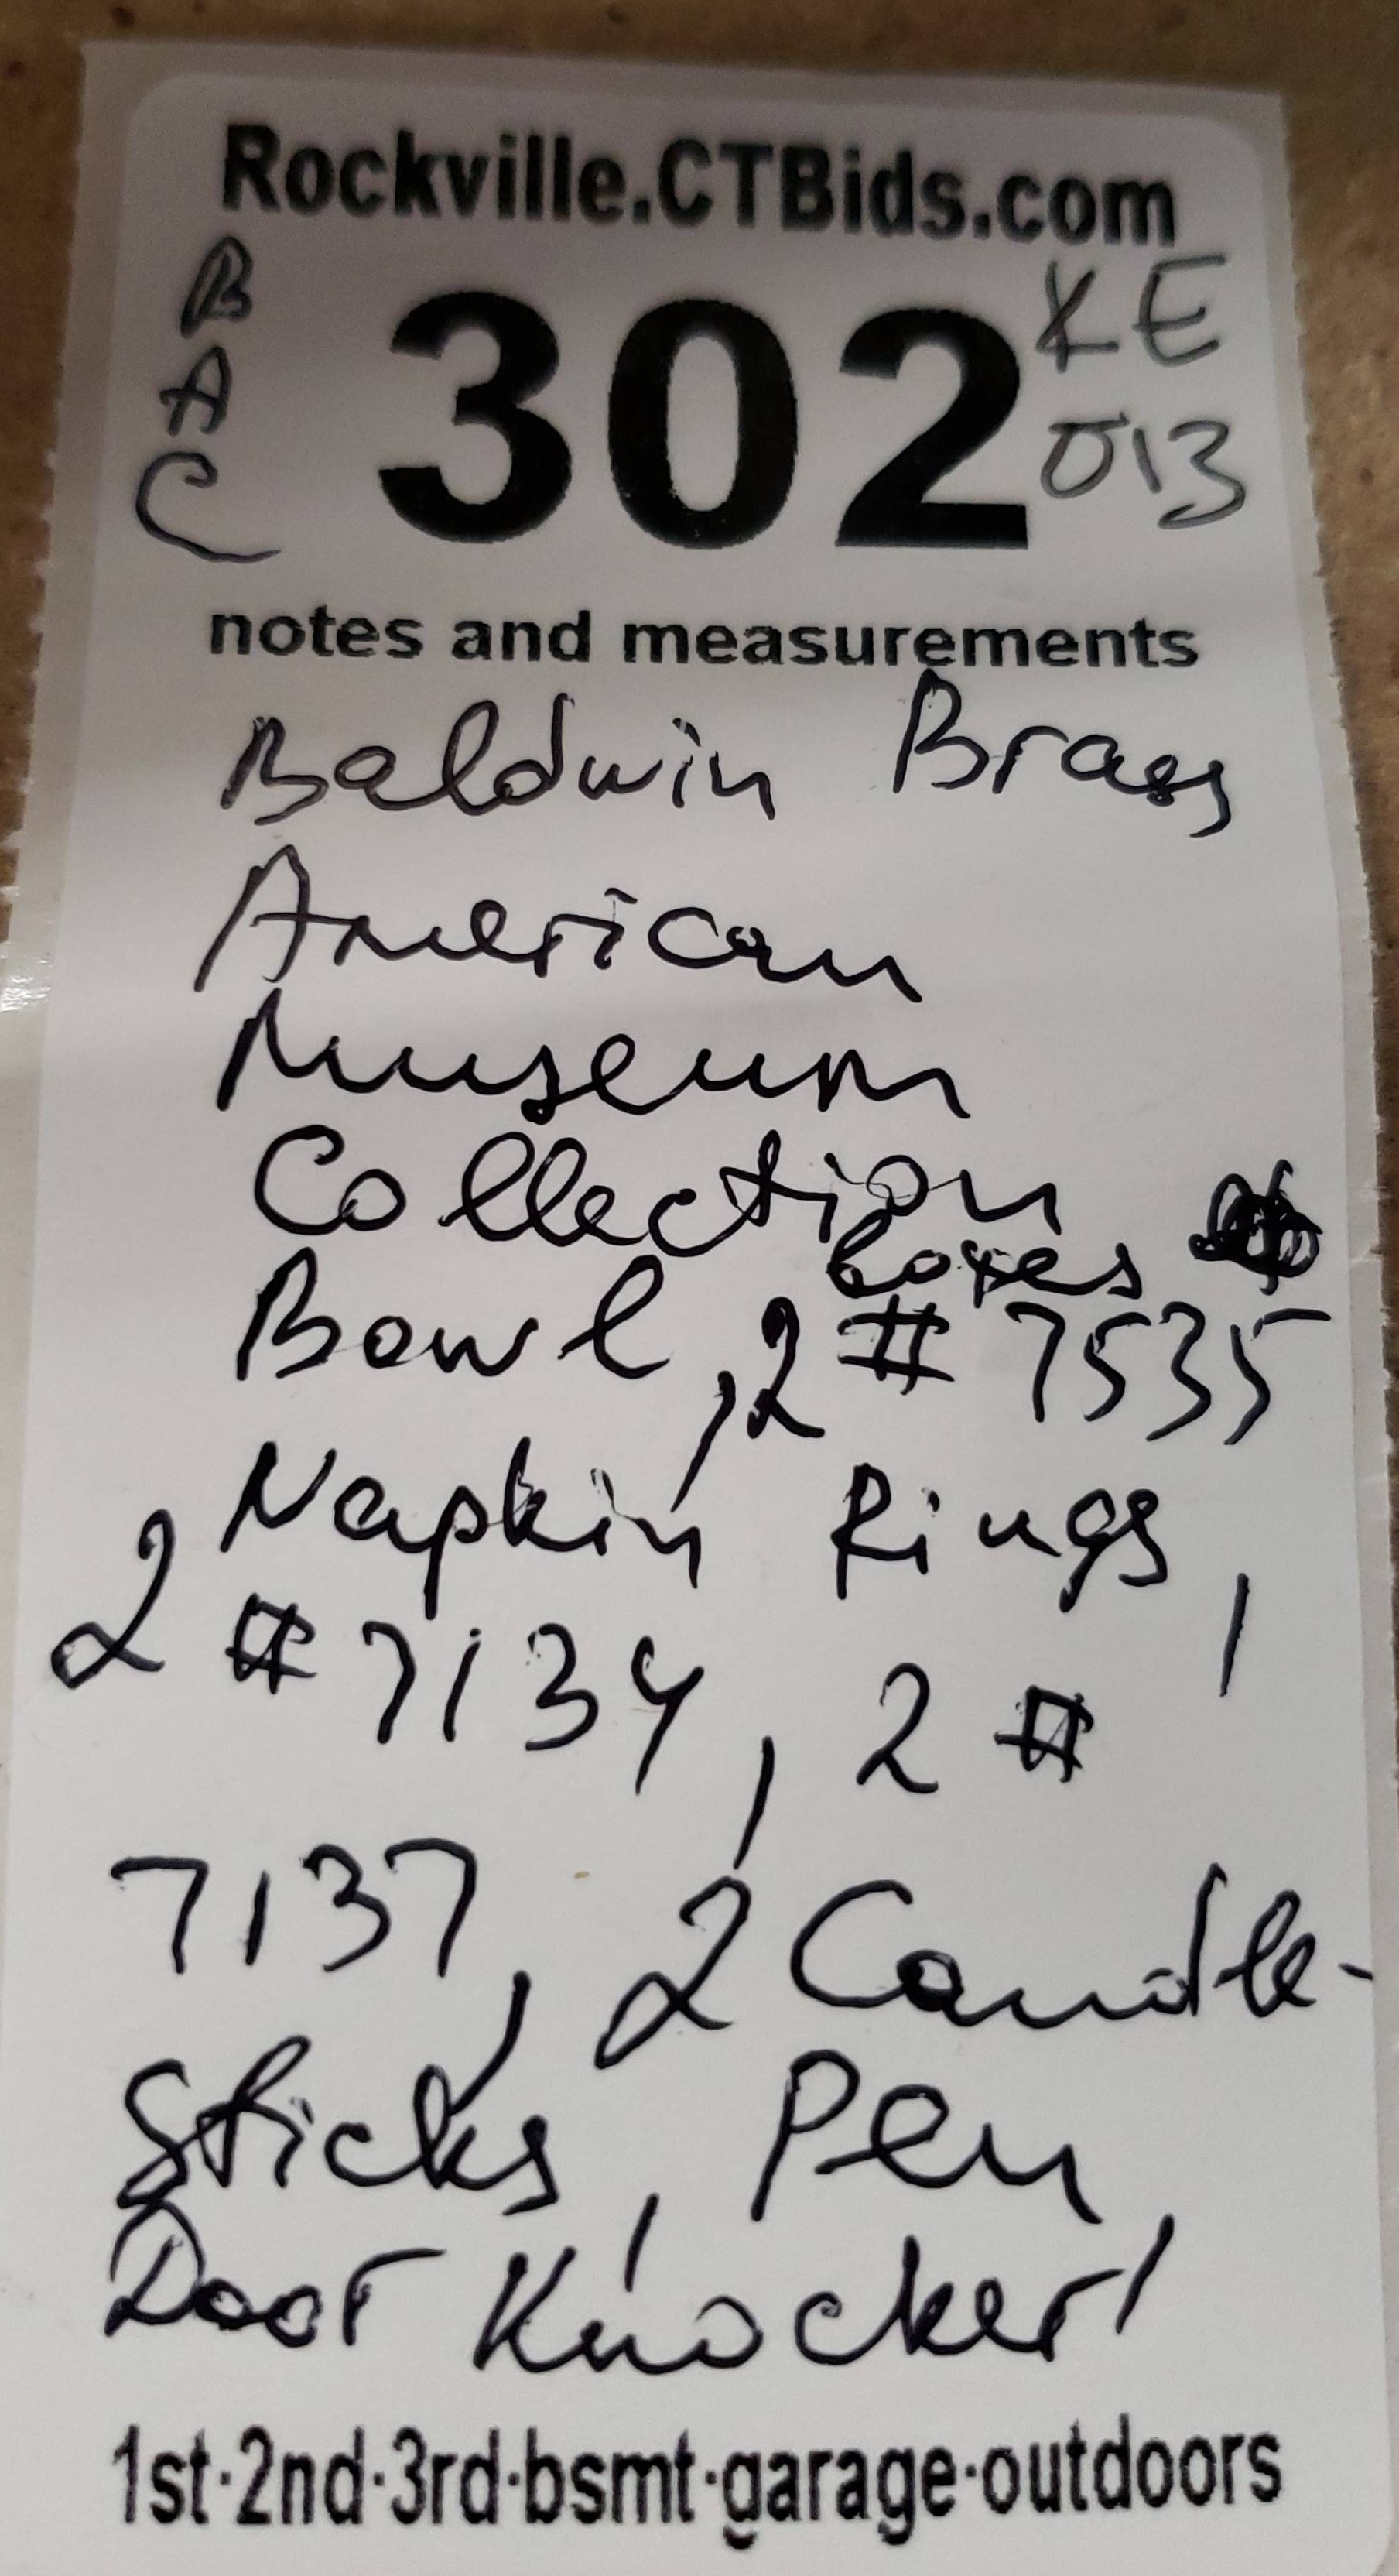 Rockville.CTBids.com
B
A
C
302
KE
013
notes and measurements
Baldwin Brass
American
Museum
Collection
boxes
Bowl, 2 # 7535
Napkin Rings,
2 # 7134, 2 #
7137, 2 Candle-
Sticks, Pen,
Door Knocker,
1st·2nd·3rd·bsmt·garage·outdoors